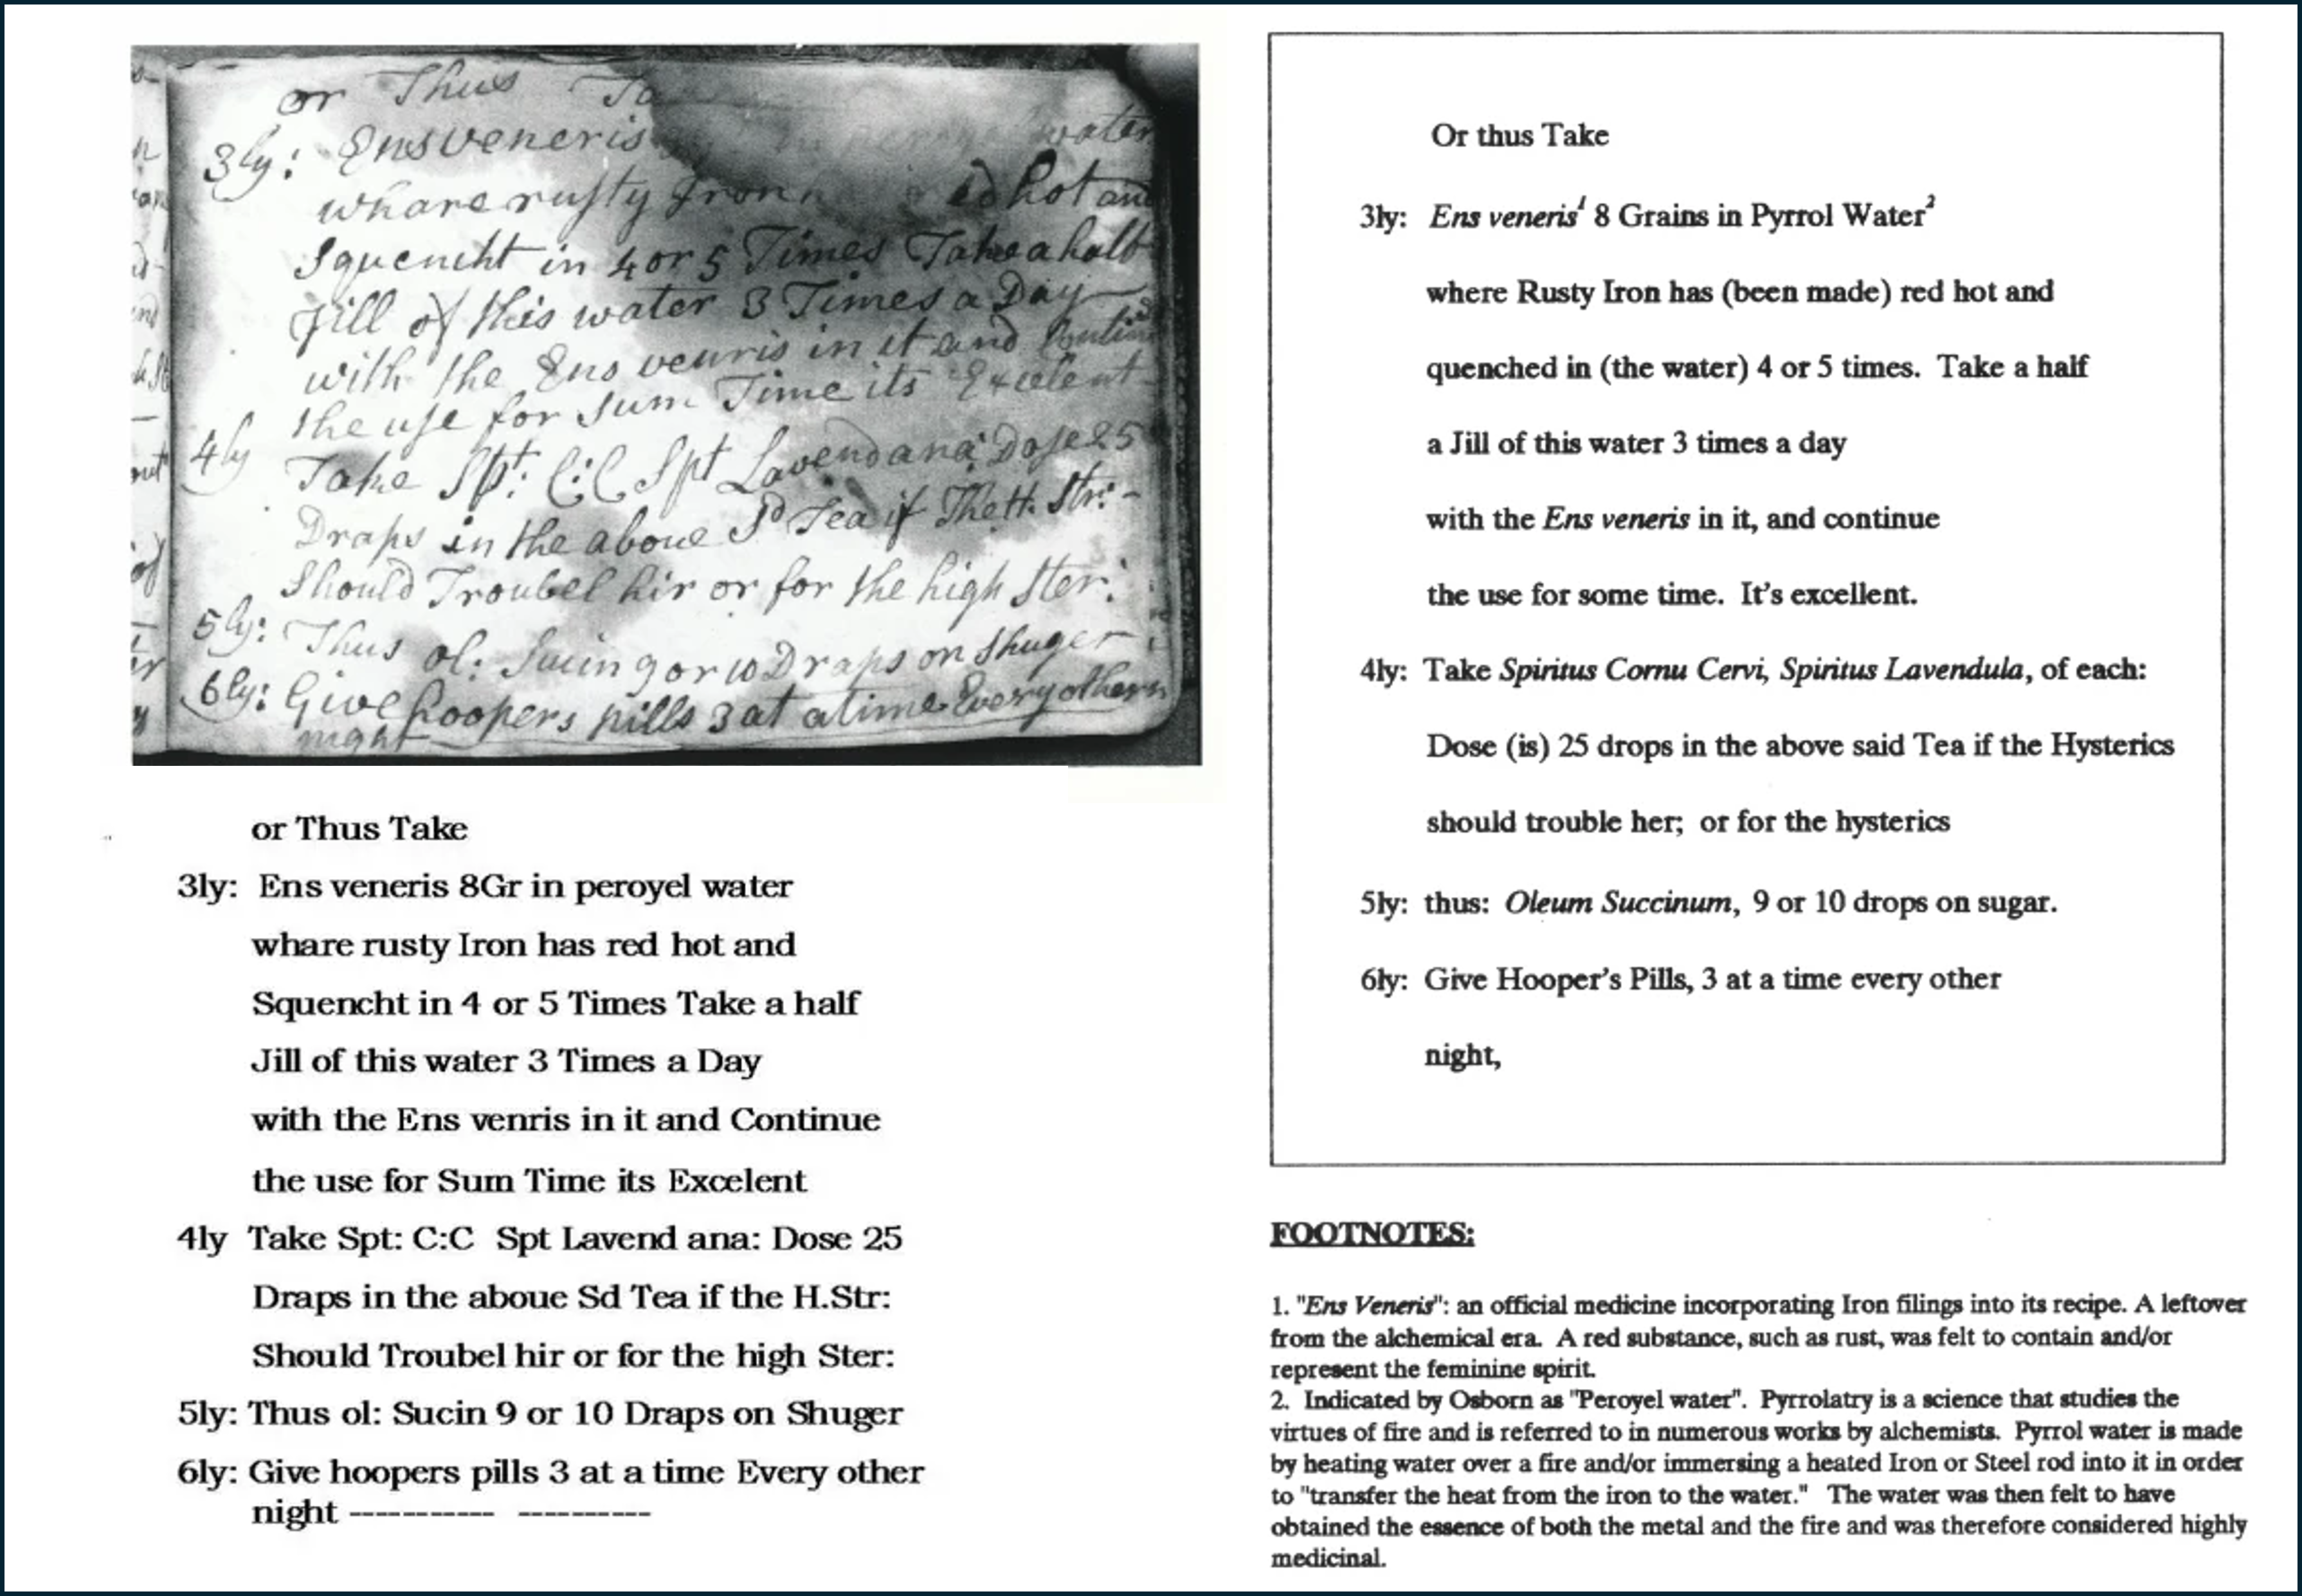 or Thus Ta
3ly: Ens veneris water
whare rusty Iron red hot and
Squencht in 4 or 5 Times Take a half
Jill of this water 3 Times a Day
with the Ens venris in it and Contin
the use for Sum Time its Excelent
4ly Take Spt: C:C Spt Lavend ana: Dose 25
Draps in the aboue Sd Tea if The H. Str:
Should Troubel hir or for the high Ster:
5ly: Thus ol: Sucin 9 or 10 Draps on Shuger
6ly: Give hoopers pills 3 at a time Every other
night
or Thus Take
3ly: Ens veneris 8Gr in peroyel water
whare rusty Iron has red hot and
Squencht in 4 or 5 Times Take a half
Jill of this water 3 Times a Day
with the Ens venris in it and Continue
the use for Sum Time its Excelent
4ly Take Spt: C:C Spt Lavend ana: Dose 25
Draps in the aboue Sd Tea if the H.Str:
Should Troubel hir or for the high Ster:
5ly: Thus ol: Sucin 9 or 10 Draps on Shuger
6ly: Give hoopers pills 3 at a time Every other
night ----------- ----------
Or thus Take
3ly: Ens veneris1 8 Grains in Pyrrol Water2
where Rusty Iron has (been made) red hot and
quenched in (the water) 4 or 5 times. Take a half
a Jill of this water 3 times a day
with the Ens veneris in it, and continue
the use for some time. It's excellent.
4ly: Take Spiritus Cornu Cervi, Spiritus Lavendula, of each:
Dose (is) 25 drops in the above said Tea if the Hysterics
should trouble her; or for the hysterics
5ly: thus: Oleum Succinum, 9 or 10 drops on sugar.
6ly: Give Hooper's Pills, 3 at a time every other
night,
FOOTNOTES:
1. "Ens Veneris": an official medicine incorporating Iron filings into its recipe. A leftover
from the alchemical era. A red substance, such as rust, was felt to contain and/or
represent the feminine spirit.
2. Indicated by Osborn as "Peroyel water". Pyrrolatry is a science that studies the
virtues of fire and is referred to in numerous works by alchemists. Pyrrol water is made
by heating water over a fire and/or immersing a heated Iron or Steel rod into it in order
to "transfer the heat from the iron to the water." The water was then felt to have
obtained the essence of both the metal and the fire and was therefore considered highly
medicinal.